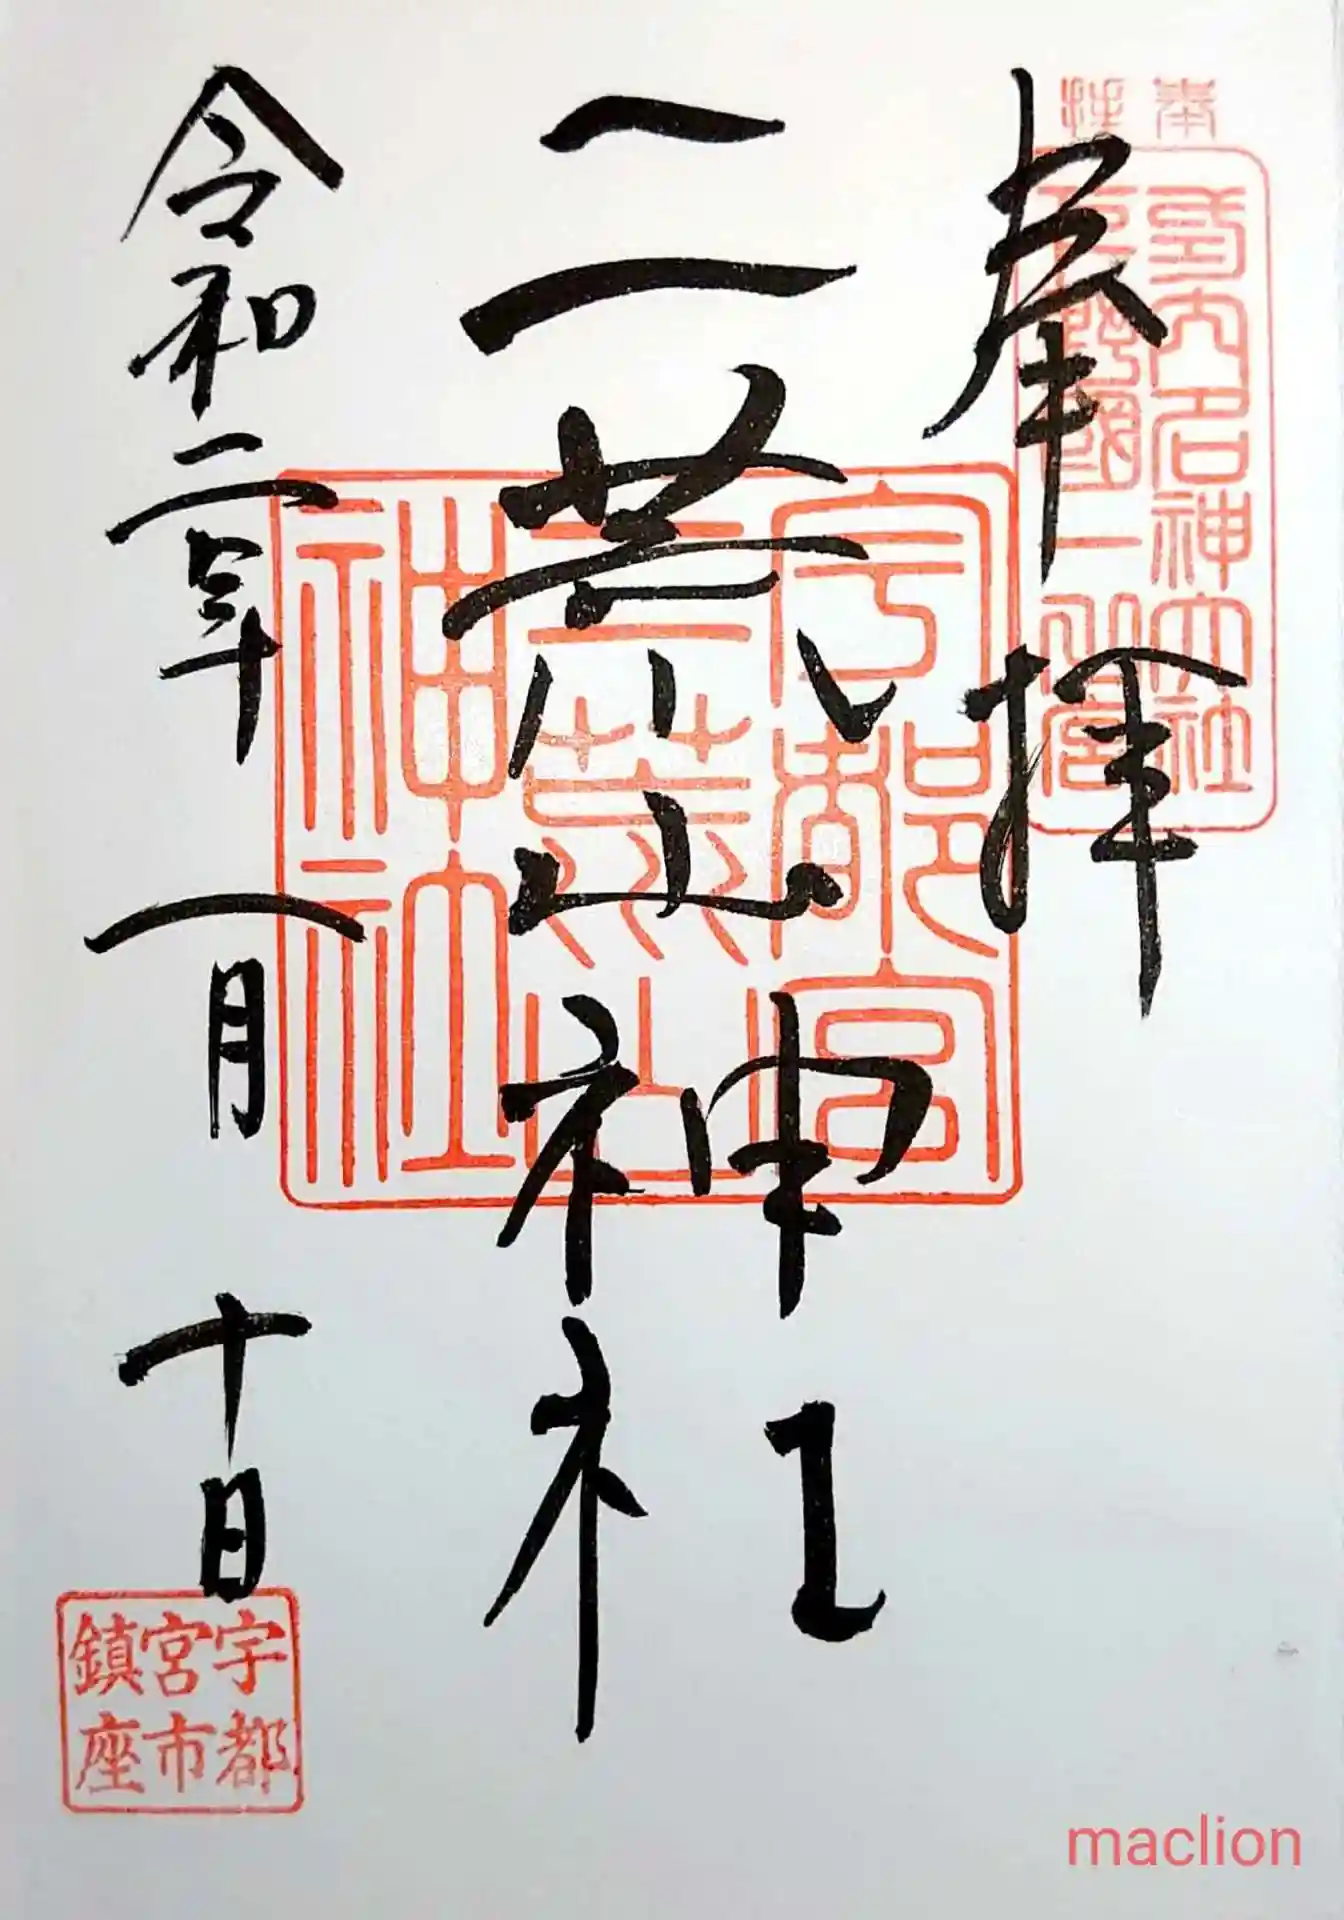 奉拝
二荒山神社
令和二年一月十日
名神大社
一之宮
宇都宮
二荒山
神社
宇都
宮市
鎮座
maclion